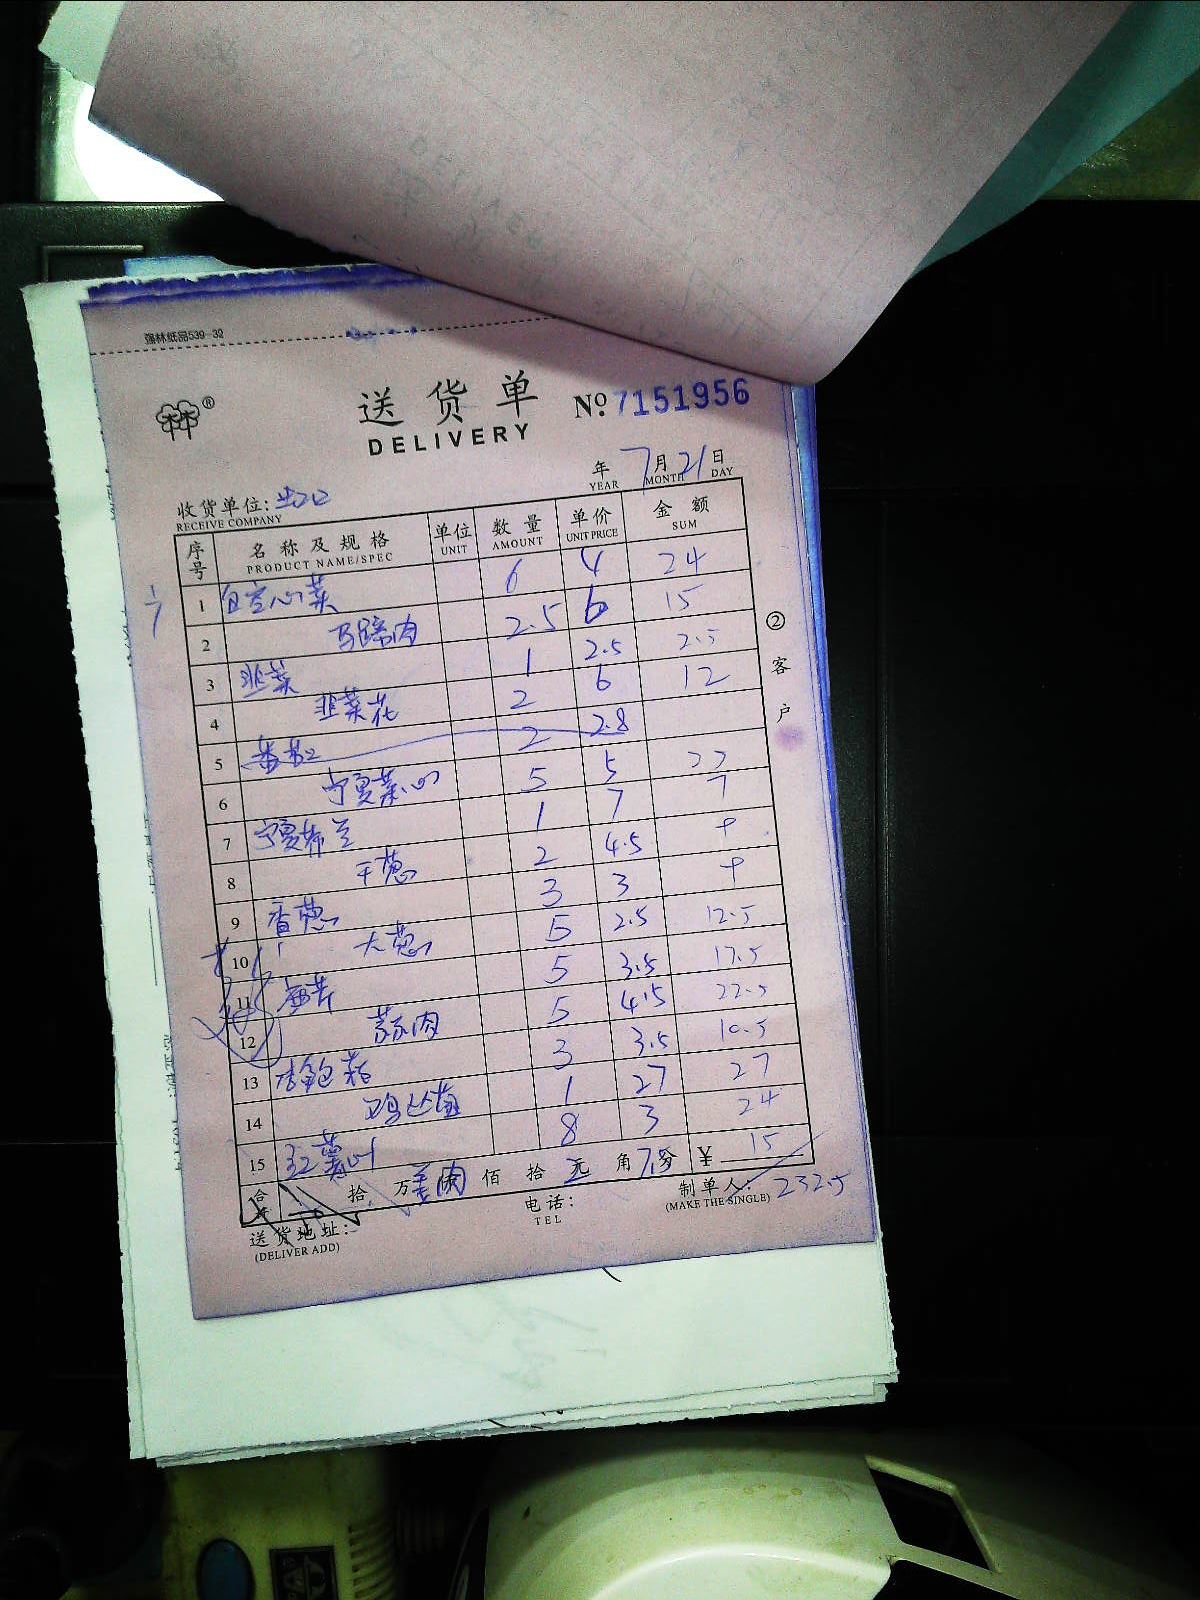 强林纸品539-32
送货单 No. 7151956
DELIVERY
年 7月21日
YEAR MONTH DAY
收货单位:
RECEIVE COMPANY
序号 名称及规格 单位 数量 单价 金额
PRODUCT NAME/SPEC UNIT AMOUNT UNIT PRICE SUM
1 白空心菜 6 4 24
2 马蹄肉 2.5 6 15
3 韭菜 1 2.5 2.5
4 韭菜花 2 6 12
5 2 2.8
6 宁夏菜心 5 5
7 宁夏芥兰 1 7 7
8 干葱 2 4.5
9 香葱 3 3
10 大葱 5 2.5 12.5
11 5 3.5 17.5
12 蒜肉 5 4.5 22.5
13 3 3.5 10.5
14 1 27 27
15 红菜心 8 3 24
合计 拾 万 佰 拾 元 角 7.5 分 ¥ 15
送货地址: 电话: 制单人: 232.5
(DELIVER ADD) TEL (MAKE THE SINGLE)
②客户